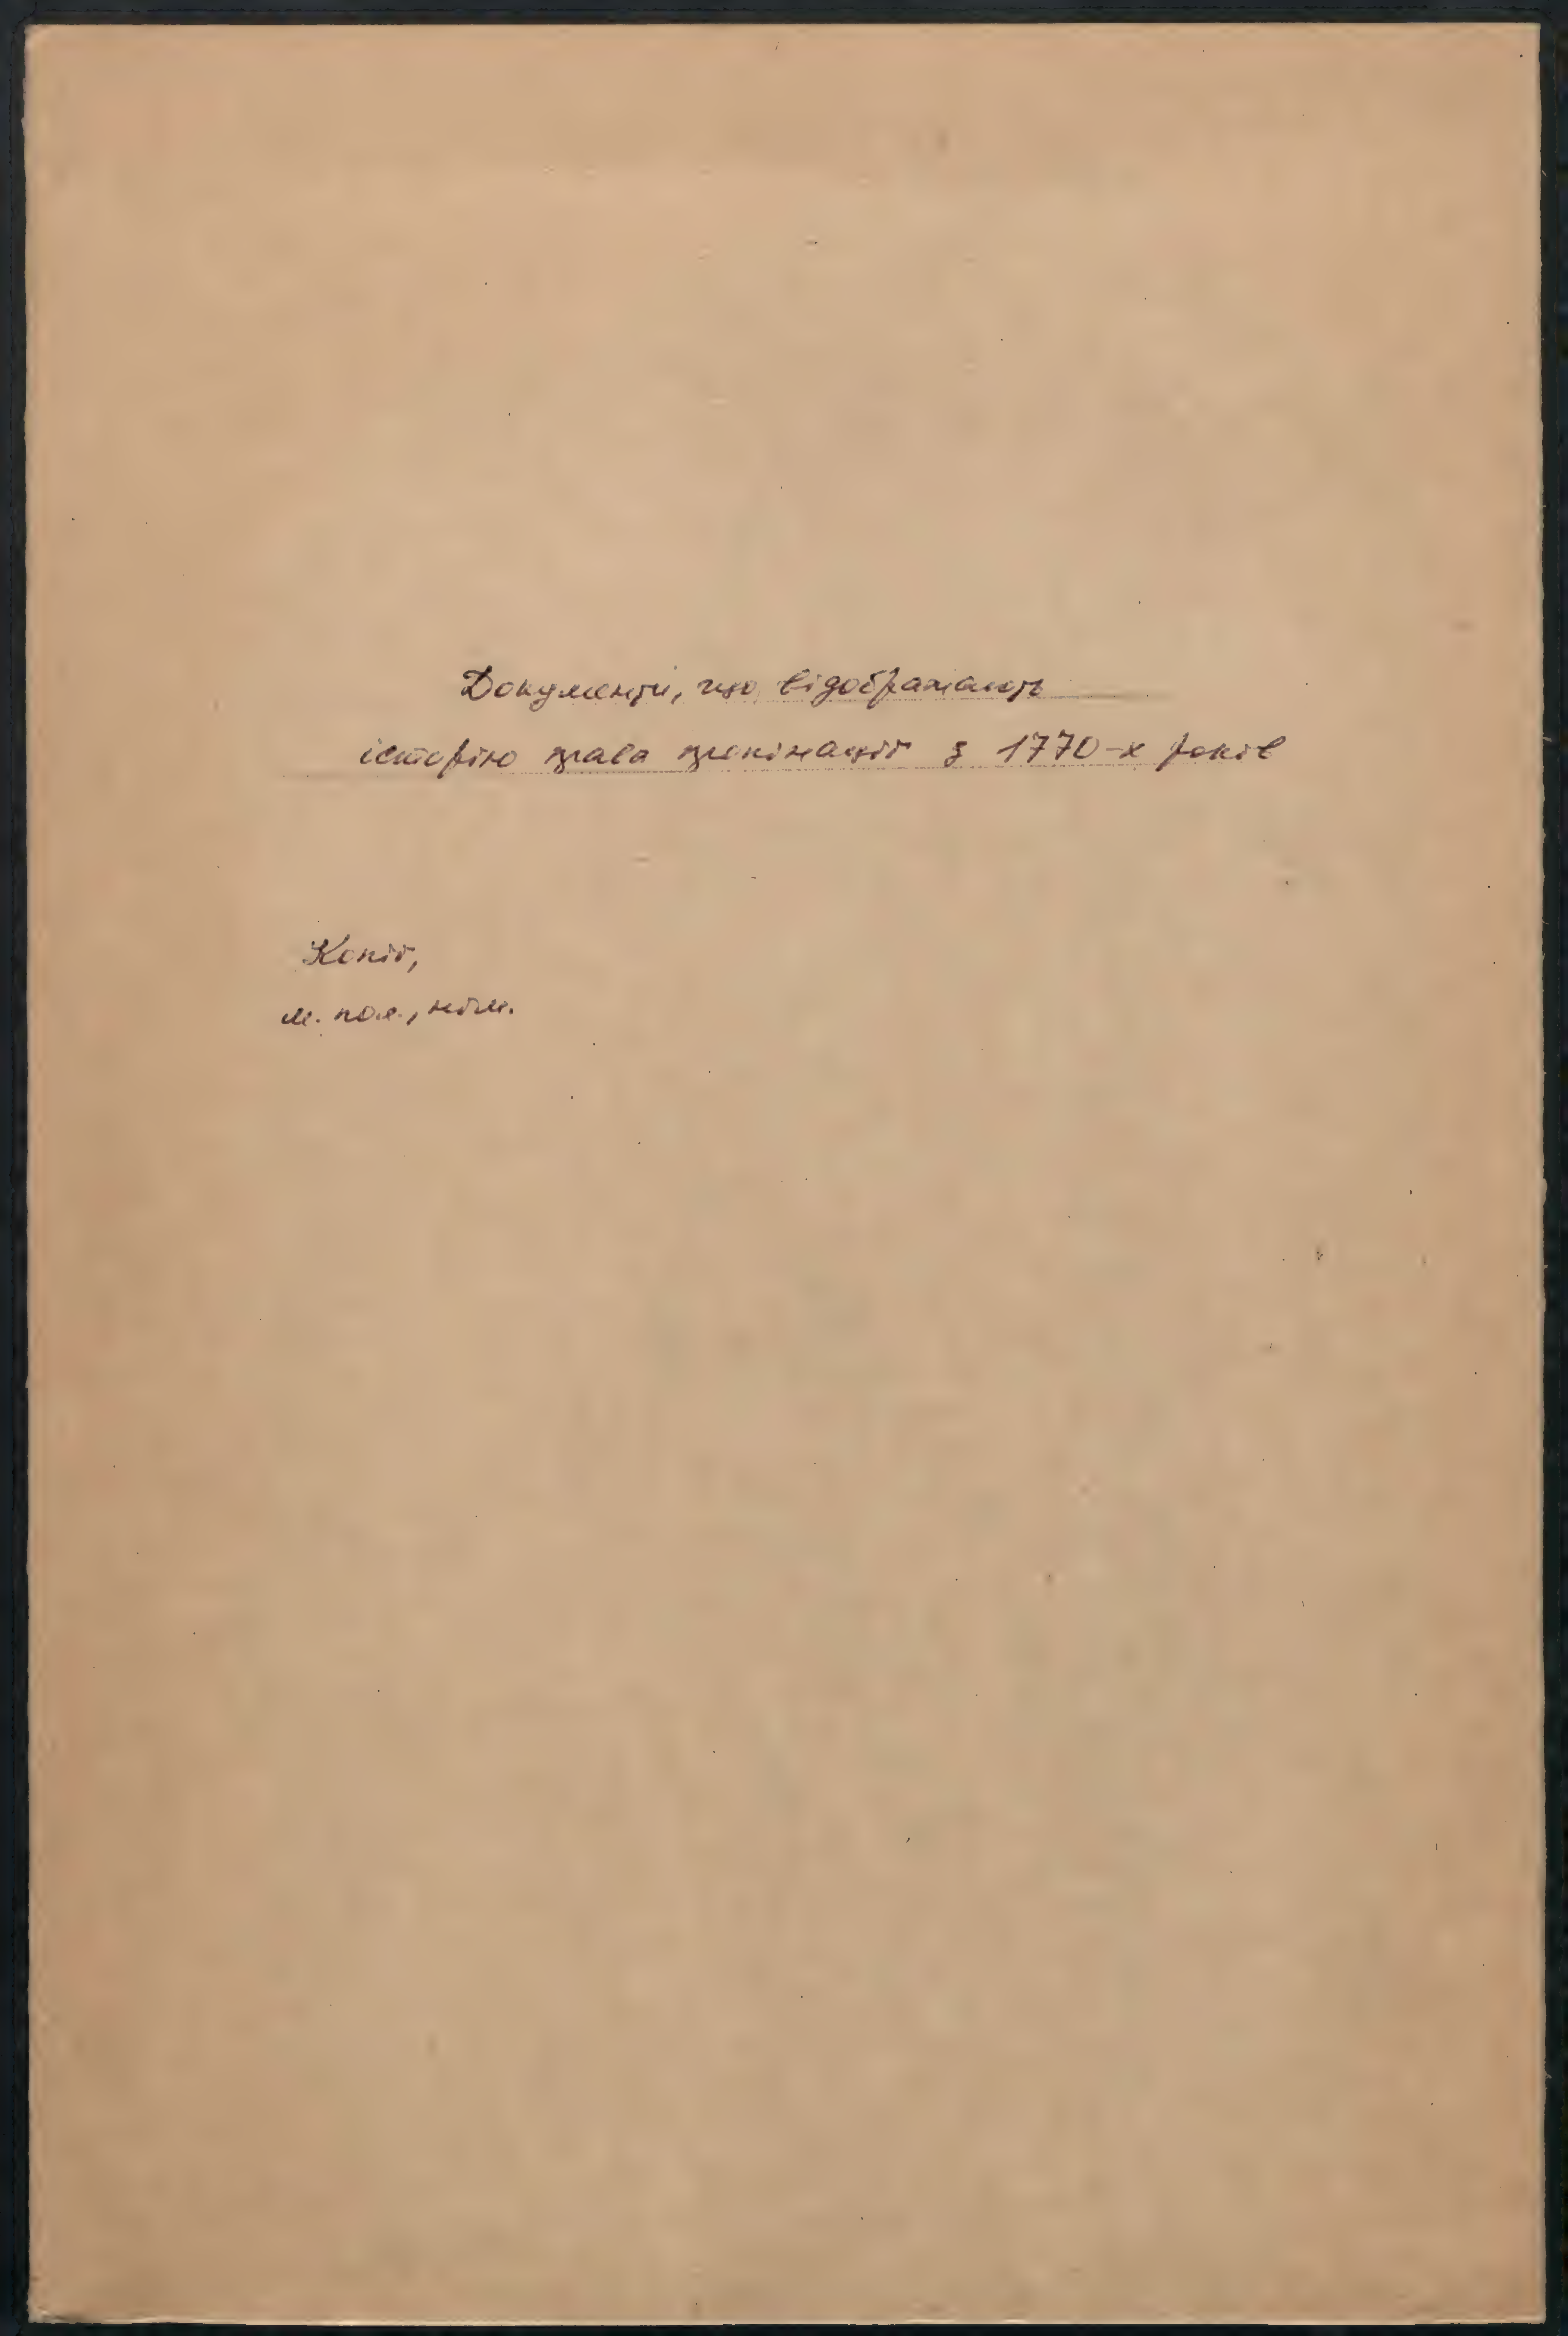 Документи, що відображають
історію права пропінації з 1770-х років
Копії,
м. пол., нім.